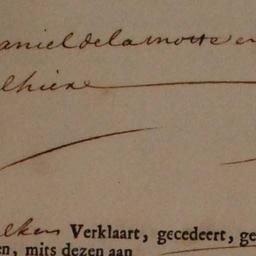 aniel de la motte en
lhiere
elken Verklaart, gecedeert, ge
en, mits dezen aan